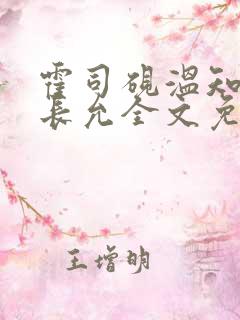 霍司砚温知
长允全文免
王增明